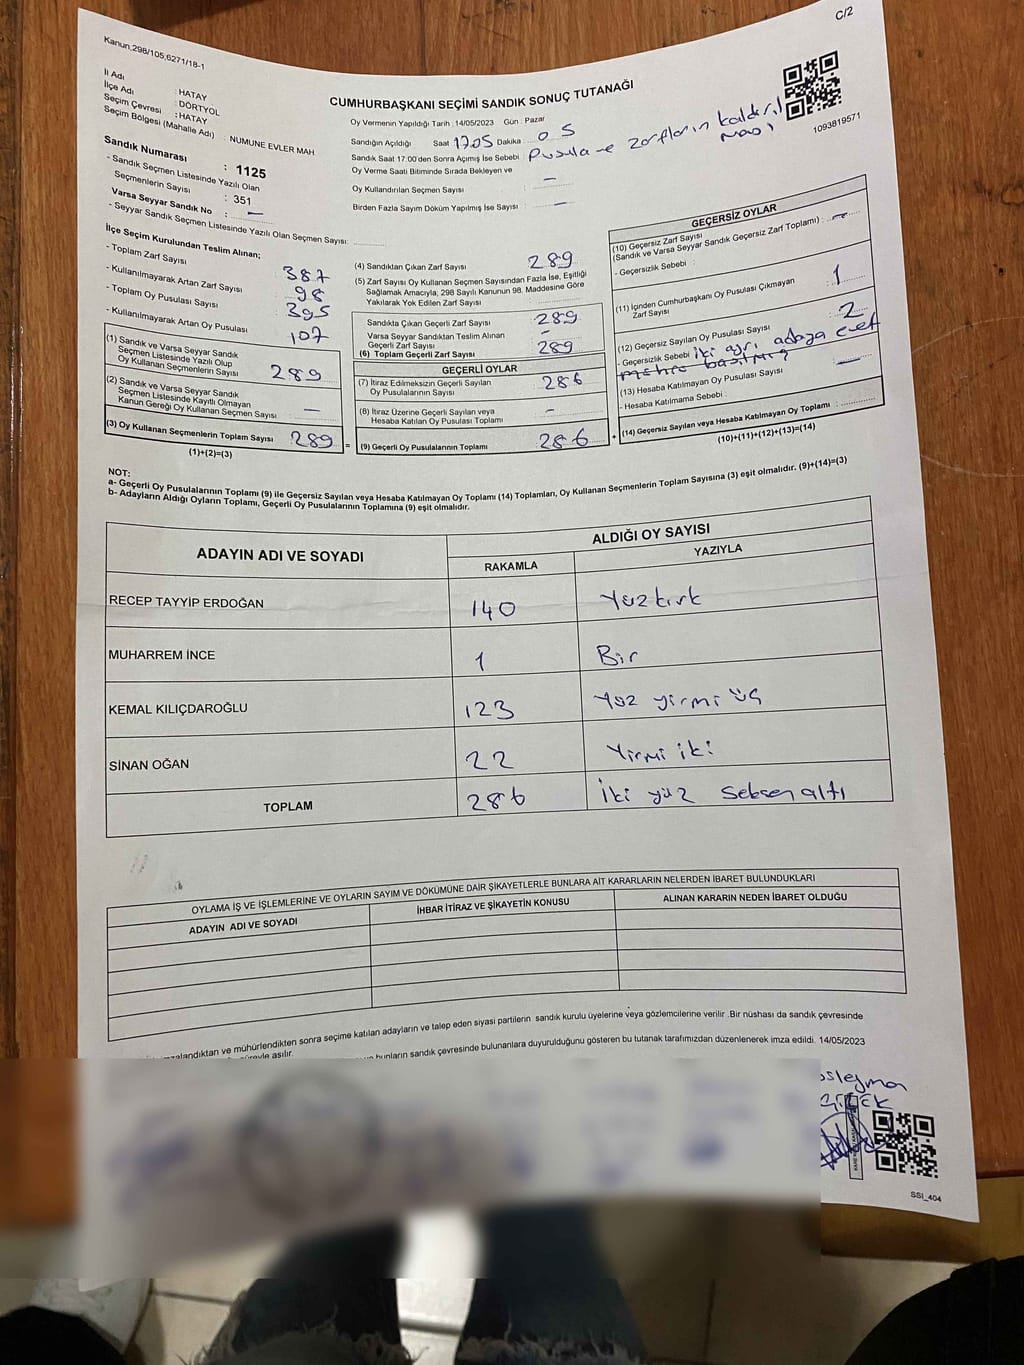 C/2
Kanun,298/105,6271/18-1
İl Adı : HATAY
İlçe Adı : DÖRTYOL
Seçim Çevresi : HATAY
Seçim Bölgesi (Mahalle Adı) : NUMUNE EVLER MAH
Sandık Numarası : 1125
- Sandık Seçmen Listesinde Yazılı Olan
Seçmenlerin Sayısı : 351
Varsa Seyyar Sandık No : —
- Seyyar Sandık Seçmen Listesinde Yazılı Olan Seçmen Sayısı:
CUMHURBAŞKANI SEÇİMİ SANDIK SONUÇ TUTANAĞI
Oy Vermenin Yapıldığı Tarih :14/05/2023 Gün : Pazar
Sandığın Açıldığı Saat 17.05 Dakika : 05
Sandık Saat 17:00'den Sonra Açımış İse Sebebi Pusula ve zarfların kaldırıl
ması
Oy Verme Saati Bitiminde Sırada Bekleyen ve
Oy Kullandırılan Seçmen Sayısı : —
Birden Fazla Sayım Döküm Yapılmış İse Sayısı : —
1093819571
İlçe Seçim Kurulundan Teslim Alınan;
- Toplam Zarf Sayısı : 387
- Kullanılmayarak Artan Zarf Sayısı : 98
- Toplam Oy Pusulası Sayısı : 395
- Kullanılmayarak Artan Oy Pusulası : 107
(1) Sandık ve Varsa Seyyar Sandık
Seçmen Listesinde Yazılı Olup
Oy Kullanan Seçmenlerin Sayısı 289
(2) Sandık ve Varsa Seyyar Sandık
Seçmen Listesinde Kayıtlı Olmayan
Kanun Gereği Oy Kullanan Seçmen Sayısı —
(3) Oy Kullanan Seçmenlerin Toplam Sayısı 289 =
(1)+(2)=(3)
(4) Sandıktan Çıkan Zarf Sayısı 289
(5) Zarf Sayısı Oy Kullanan Seçmen Sayısından Fazla İse, Eşitliği
Sağlamak Amacıyla, 298 Sayılı Kanunun 98. Maddesine Göre
Yakılarak Yok Edilen Zarf Sayısı :
Sandıkta Çıkan Geçerli Zarf Sayısı : 289
Varsa Seyyar Sandıktan Teslim Alınan
Geçerli Zarf Sayısı : —
(6) Toplam Geçerli Zarf Sayısı 289
GEÇERLİ OYLAR
(7) İtiraz Edilmeksizin Geçerli Sayılan
Oy Pusulalarının Sayısı 286
(8) İtiraz Üzerine Geçerli Sayılan veya
Hesaba Katılan Oy Pusulası Toplamı —
(9) Geçerli Oy Pusulalarının Toplamı 286 +
GEÇERSİZ OYLAR
(10) Geçersiz Zarf Sayısı
(Sandık ve Varsa Seyyar Sandık Geçersiz Zarf Toplamı) : —
- Geçersizlik Sebebi :
(11) İçinden Cumhurbaşkanı Oy Pusulası Çıkmayan
Zarf Sayısı : 1
(12) Geçersiz Sayılan Oy Pusulası Sayısı : 2
- Geçersizlik Sebebi : iki ayrı adaya evet
mühre basılmış
(13) Hesaba Katılmayan Oy Pusulası Sayısı : —
- Hesaba Katılmama Sebebi :
(14) Geçersiz Sayılan veya Hesaba Katılmayan Oy Toplamı :
(10)+(11)+(12)+(13)=(14)
NOT:
a- Geçerli Oy Pusulalarının Toplamı (9) ile Geçersiz Sayılan veya Hesaba Katılmayan Oy Toplamı (14) Toplamları, Oy Kullanan Seçmenlerin Toplam Sayısına (3) eşit olmalıdır. (9)+(14)=(3)
b- Adayların Aldığı Oyların Toplamı, Geçerli Oy Pusulalarının Toplamına (9) eşit olmalıdır.
ADAYIN ADI VE SOYADI ALDIĞI OY SAYISI
RAKAMLA YAZIYLA
RECEP TAYYİP ERDOĞAN 140 Yüzkırk
MUHARREM İNCE 1 Bir
KEMAL KILIÇDAROĞLU 123 Yüz yirmi üç
SİNAN OĞAN 22 Yirmi iki
TOPLAM 286 İki yüz seksen altı
OYLAMA İŞ VE İŞLEMLERİNE VE OYLARIN SAYIM VE DÖKÜMÜNE DAİR ŞİKAYETLERLE BUNLARA AİT KARARLARIN NELERDEN İBARET BULUNDUKLARI
ADAYIN ADI VE SOYADI İHBAR İTİRAZ VE ŞİKAYETİN KONUSU ALINAN KARARIN NEDEN İBARET OLDUĞU
zalandıktan ve mühürlendikten sonra seçime katılan adayların ve talep eden siyasi partilerin sandık kurulu üyelerine veya gözlemcilerine verilir .Bir nüshası da sandık çevresinde
asılır. bunların sandık çevresinde bulunanlara duyurulduğunu gösteren bu tutanak tarafımızdan düzenlenerek imza edildi. 14/05/2023
SSİ_404